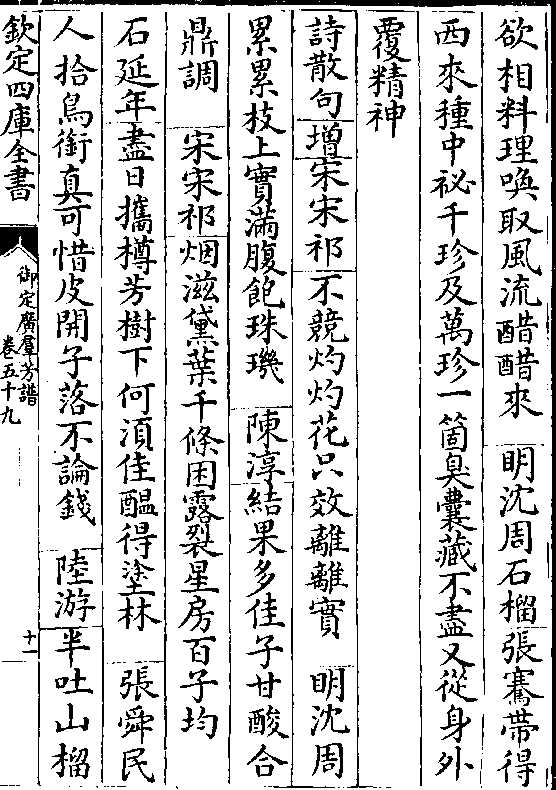 欲相料理喚取風流醋醋來　明沈周石榴張騫帶得
西來種中祕千珍及萬珍一箇臭囊藏不盡又從身外
覆精神
詩散句增宋宋祁不競灼灼花只效離離實　明沈周
累累技上實滿腹飽珠璣　陳淳結果多佳子甘酸合
鼎調　宋宋祁烟滋黛葉千條困露裂星房百子均
石延年盡日攜樽芳樹下何湏佳醞得塗林　張舜民
人拾鳥銜真可惜皮開子落不論錢　陸游半吐山榴
欽定四庫全書
御定廣羣芳譜
卷五十九
十一